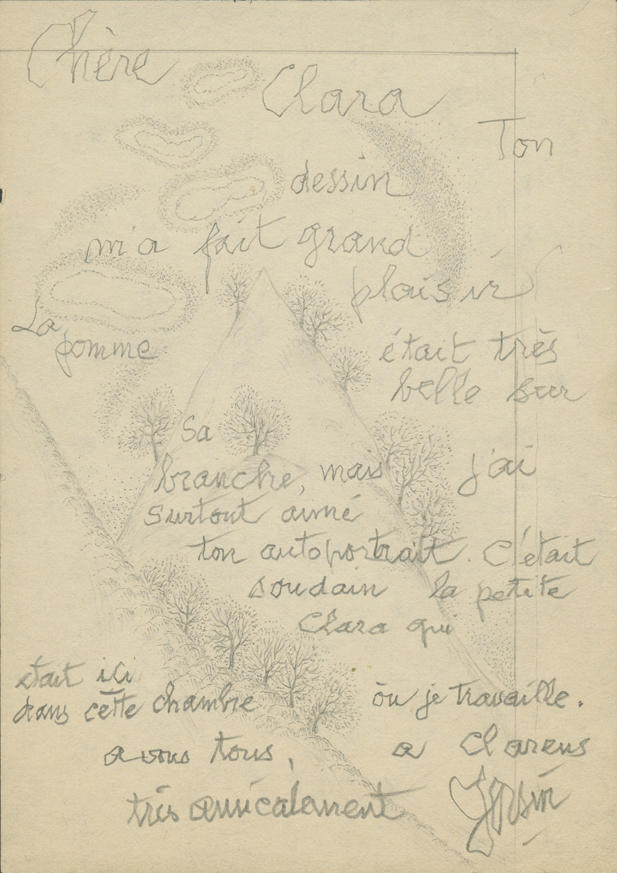 Chère
Clara
Ton
dessin
m'a fait grand
plaisir
La
pomme
était très
belle sur
Sa
branche, mais j'ai
surtout aimé
ton autoportrait. C'était
soudain la petite
Clara qui
était ici
dans cette chambre où je travaille.
a vous tous, a Clarens
très amicalement